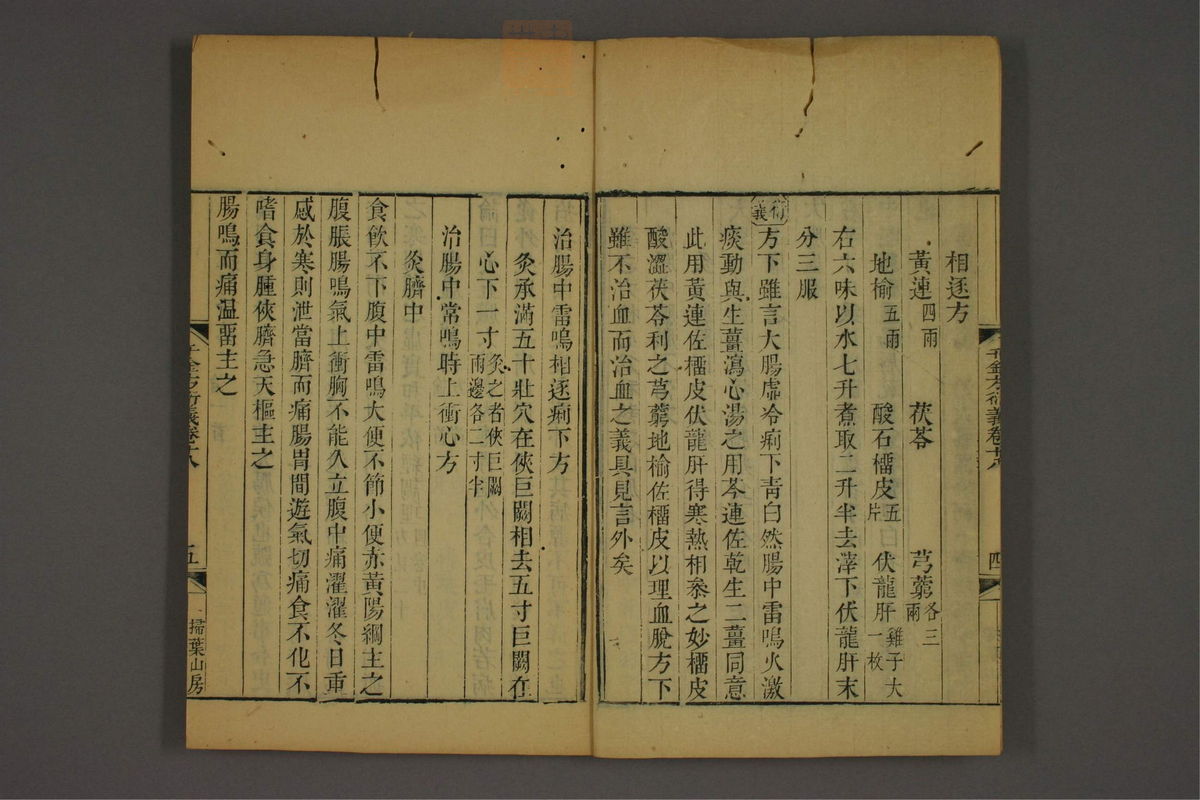 相逐方
黃連四兩 茯苓 芎藭各三兩
地榆五兩 酸石橊皮五片 伏龍肝雞子大一枚
右六味以水七升煮取二升半去滓下伏龍肝末
分三服
衍義方下雖言大腸虛冷痢下青白然腸中雷鳴火激
痰動與生薑瀉心湯之用芩連佐乾生二薑同意
此用黃連佐橊皮伏龍肝得寒熱相叅之妙橊皮
酸澀茯苓利之芎藭地榆佐橊皮以理血脫方下
雖不治血而治血之義具見言外矣
四
千金方衍義卷十八
治腸中雷鳴相逐痢下方
灸承滿五十壯穴在俠巨闕相去五寸巨闕在
心下一寸灸之者俠巨闕兩邊各二寸半
治腸中常鳴時上衝心方
灸臍中
食飲不下腹中雷鳴大便不節小便赤黃陽綱主之
腹脹腸鳴氣上衝胸不能久立腹中痛濯濯冬日重
感於寒則泄當臍而痛腸胃間遊氣切痛食不化不
嗜食身腫俠臍急天樞主之
腸鳴而痛溫畱主之
千金方衍義卷十八
五
掃葉山房